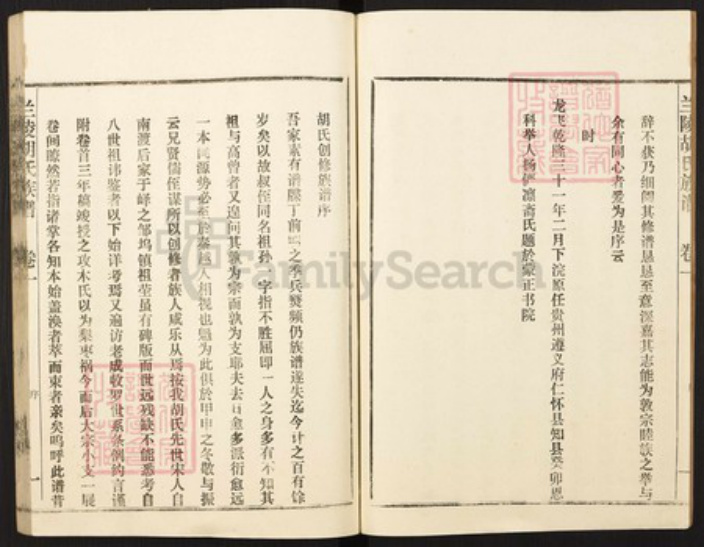 兰陵胡氏族谱 卷一
辞不获乃细阅其修谱恳恳至意深嘉其志能为敦宗睦族之举与
余有同心者爰为是序云
时
龙飞乾隆三十一年二月下浣原任贵州遵义府仁怀县知县癸卯恩
科举人杨 斋氏题於蒙正书院
胡氏创修族谱序
吾家素有谱牒丁前 之季兵燹频仍族谱遂失迄今计之百有馀
岁矣以故叔侄同名祖孙 字指不胜屈即一人之身多有不知其
祖与高曾者又遑问其孰为宗而孰为支耶夫去日愈多派衍愈远
一本 源势必至於秦越人相视也 为此惧於甲申之冬敬与振
云兄贤儒侄谋所以创修者族人咸乐从焉按我胡氏先世宋人自
南渡后家于峄之邹坞镇祖茔虽有碑版而世远残缺不能悉考自
八世祖讳 者以下始详考焉又遍访老成牧 世系条例约言谨
附卷首三年稿竣授之攻木氏以为梨枣祸今而后大宗小支一展
卷间瞭然若指诸掌各知本始盖涣者萃而束者亲矣呜呼此谱昔
兰陵胡氏族谱 卷一 序 一
FamilySearch